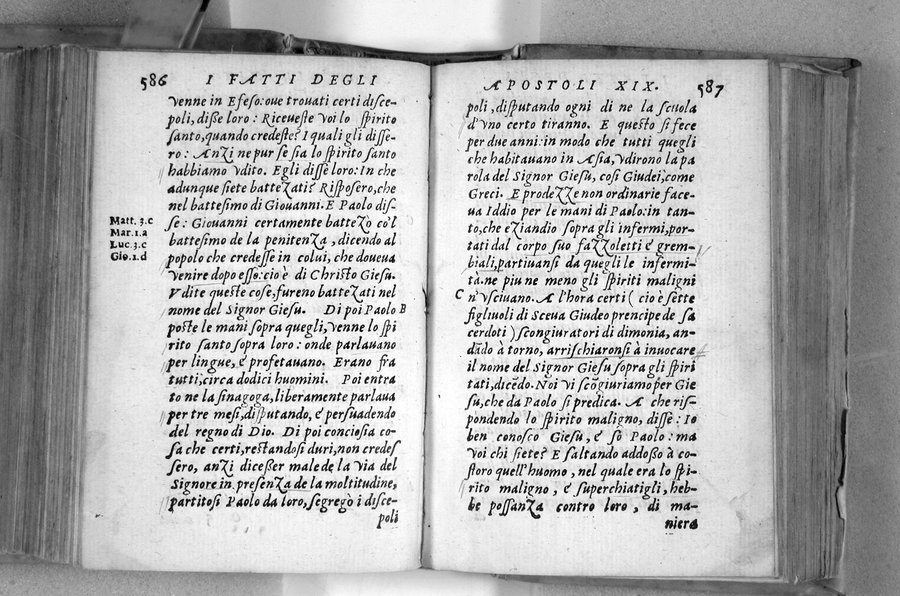 586 I FATTI DEGLI
venne in Efeso: oue trouati certi disce-
poli, disse loro: Riceueste voi lo spirito
santo, quando credeste? I quali gli disse-
ro: Anzi ne pur se sia lo spirito santo
habbiamo vdito. Egli disse loro: In che
adunque siete battezati? Risposero, che
nel battesimo di Giouanni. E Paolo dis-
se: Giouanni certamente battezo co'l
battesimo de la penitenza, dicendo al
popolo che credesse in colui, che doueua
venire dopo esso: cio è di Christo Giesu.
Vdite queste cose, fureno battezati nel
nome del Signor Giesu. Di poi Paolo B
poste le mani sopra quegli, venne lo spi
rito santo sopra loro: onde parlauano
per lingue, e profetauano. Erano fra
tutti, circa dodici huomini. Poi entra
to ne la sinagoga, liberamente parlaua
per tre mesi, disputando, e persuadendo
del regno di Dio. Di poi conciosia co-
sa che certi, restandosi duri, non credes
sero, anzi dicesser male de la via del
Signore in presenza de la moltitudine,
partitosi Paolo da loro, segregò i disce-
poli
Matt. 3.c
Mar. 1.a
Luc. 3.c
Gio. 1.d
APOSTOLI XIX. 587
poli, disputando ogni di ne la scuola
d'vno certo tiranno. E questo si fece
per due anni: in modo che tutti quegli
che habitauano in Asia, vdirono la pa
rola del Signor Giesu, cosi Giudei, come
Greci. E prodezze non ordinarie face-
ua Iddio per le mani di Paolo: in tan-
to, che eziandio sopra gli infermi, por-
tati dal corpo suo fazzoletti e grem-
biali, partiuansi da quegli le infermi-
ta. ne piu ne meno gli spiriti maligni
C n'vsciuano. A l'hora certi (cio è sette
figliuoli di Sceua Giudeo prencipe de sa
cerdoti) scongiuratori di dimonia, an-
dādo à torno, arrischiaronsi à inuocare
il nome del Signor Giesu sopra gli spiri
tati, dicēdo. Noi vi scōgiuriamo per Gie
su, che da Paolo si predica. A che ris-
pondendo lo spirito maligno, disse: Io
ben conosco Giesu, e sò Paolo: ma
voi chi siete? E saltando addosso à co-
storo quell'huomo, nel quale era lo spi-
rito maligno, e superchiatigli, heb-
be possanza contro loro, di ma-
niera